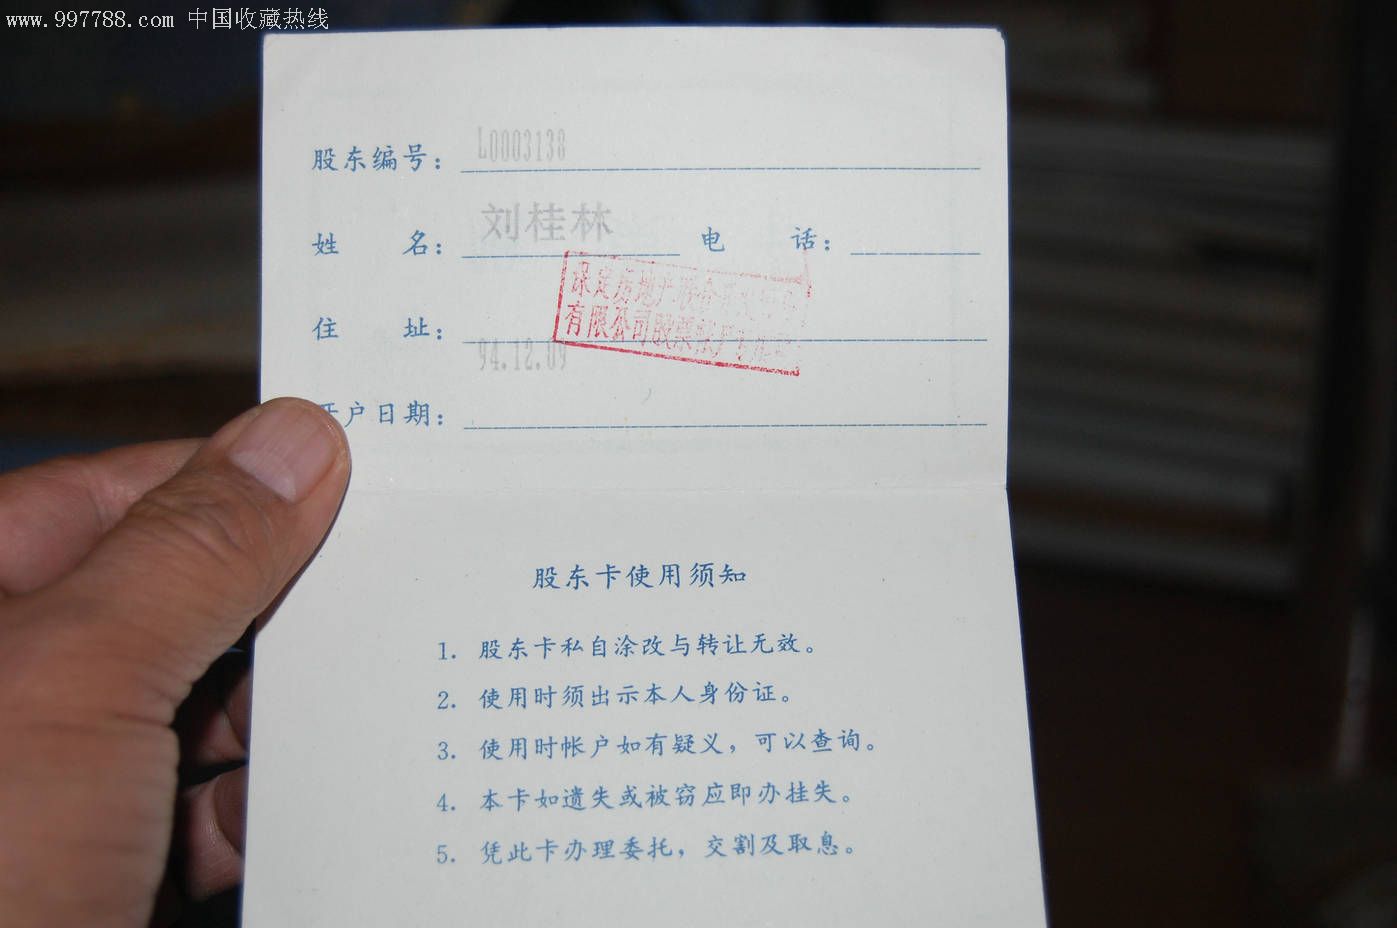 www.997788.com 中国收藏热线
股东编号: L0003138
姓 名: 刘桂林 电 话:
保定房地产联合
有限公司股票帐户专用
住 址:
94.12.09
开户日期:
股东卡使用须知
1. 股东卡私自涂改与转让无效。
2. 使用时须出示本人身份证。
3. 使用时帐户如有疑义，可以查询。
4. 本卡如遗失或被窃应即办挂失。
5. 凭此卡办理委托，交割及取息。